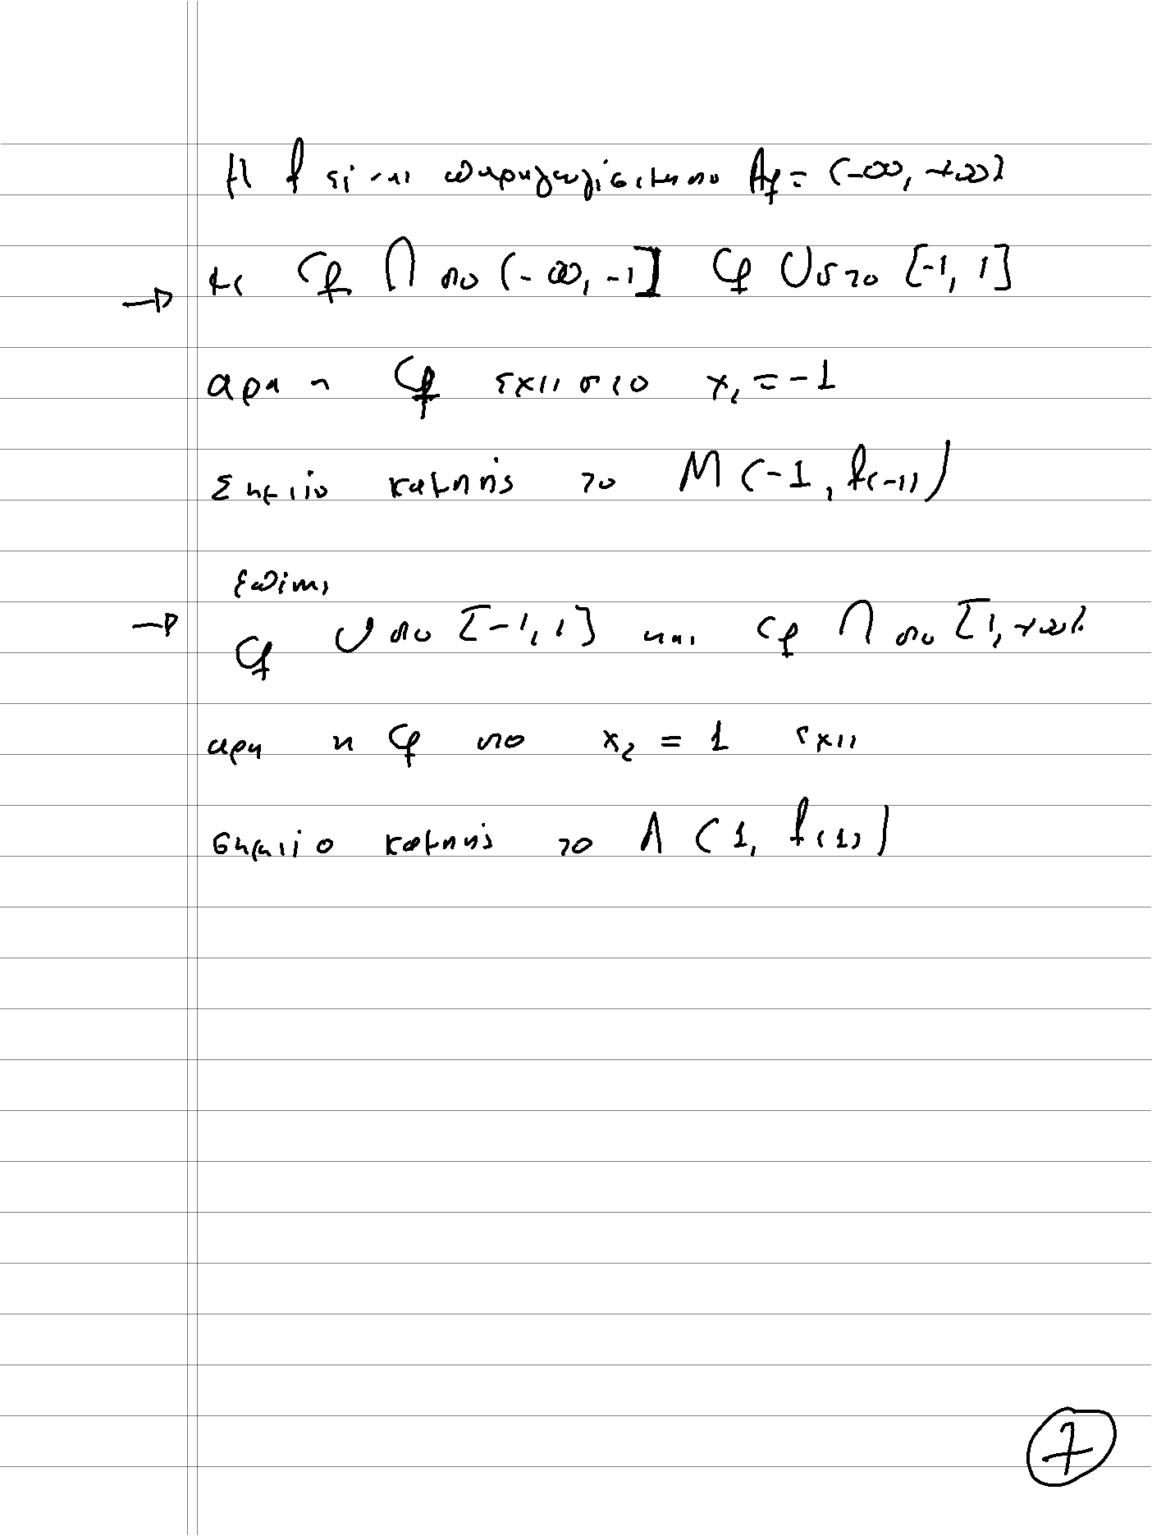 Η f είναι παραγωγίσιμη στο A_f = (-∞, +∞)
με C_f ∩ στο (-∞, -1] C_f ∪ στο [-1, 1]
→
άρα η C_f έχει στο x₁ = -1
Σημείο καμπής το M (-1, f(-1))
επίσης
→ C_f ∪ στο [-1, 1] και C_f ∩ στο [1, +∞)
άρα η C_f στο x₂ = 1 έχει
σημείο καμπής το Λ (1, f(1))
7